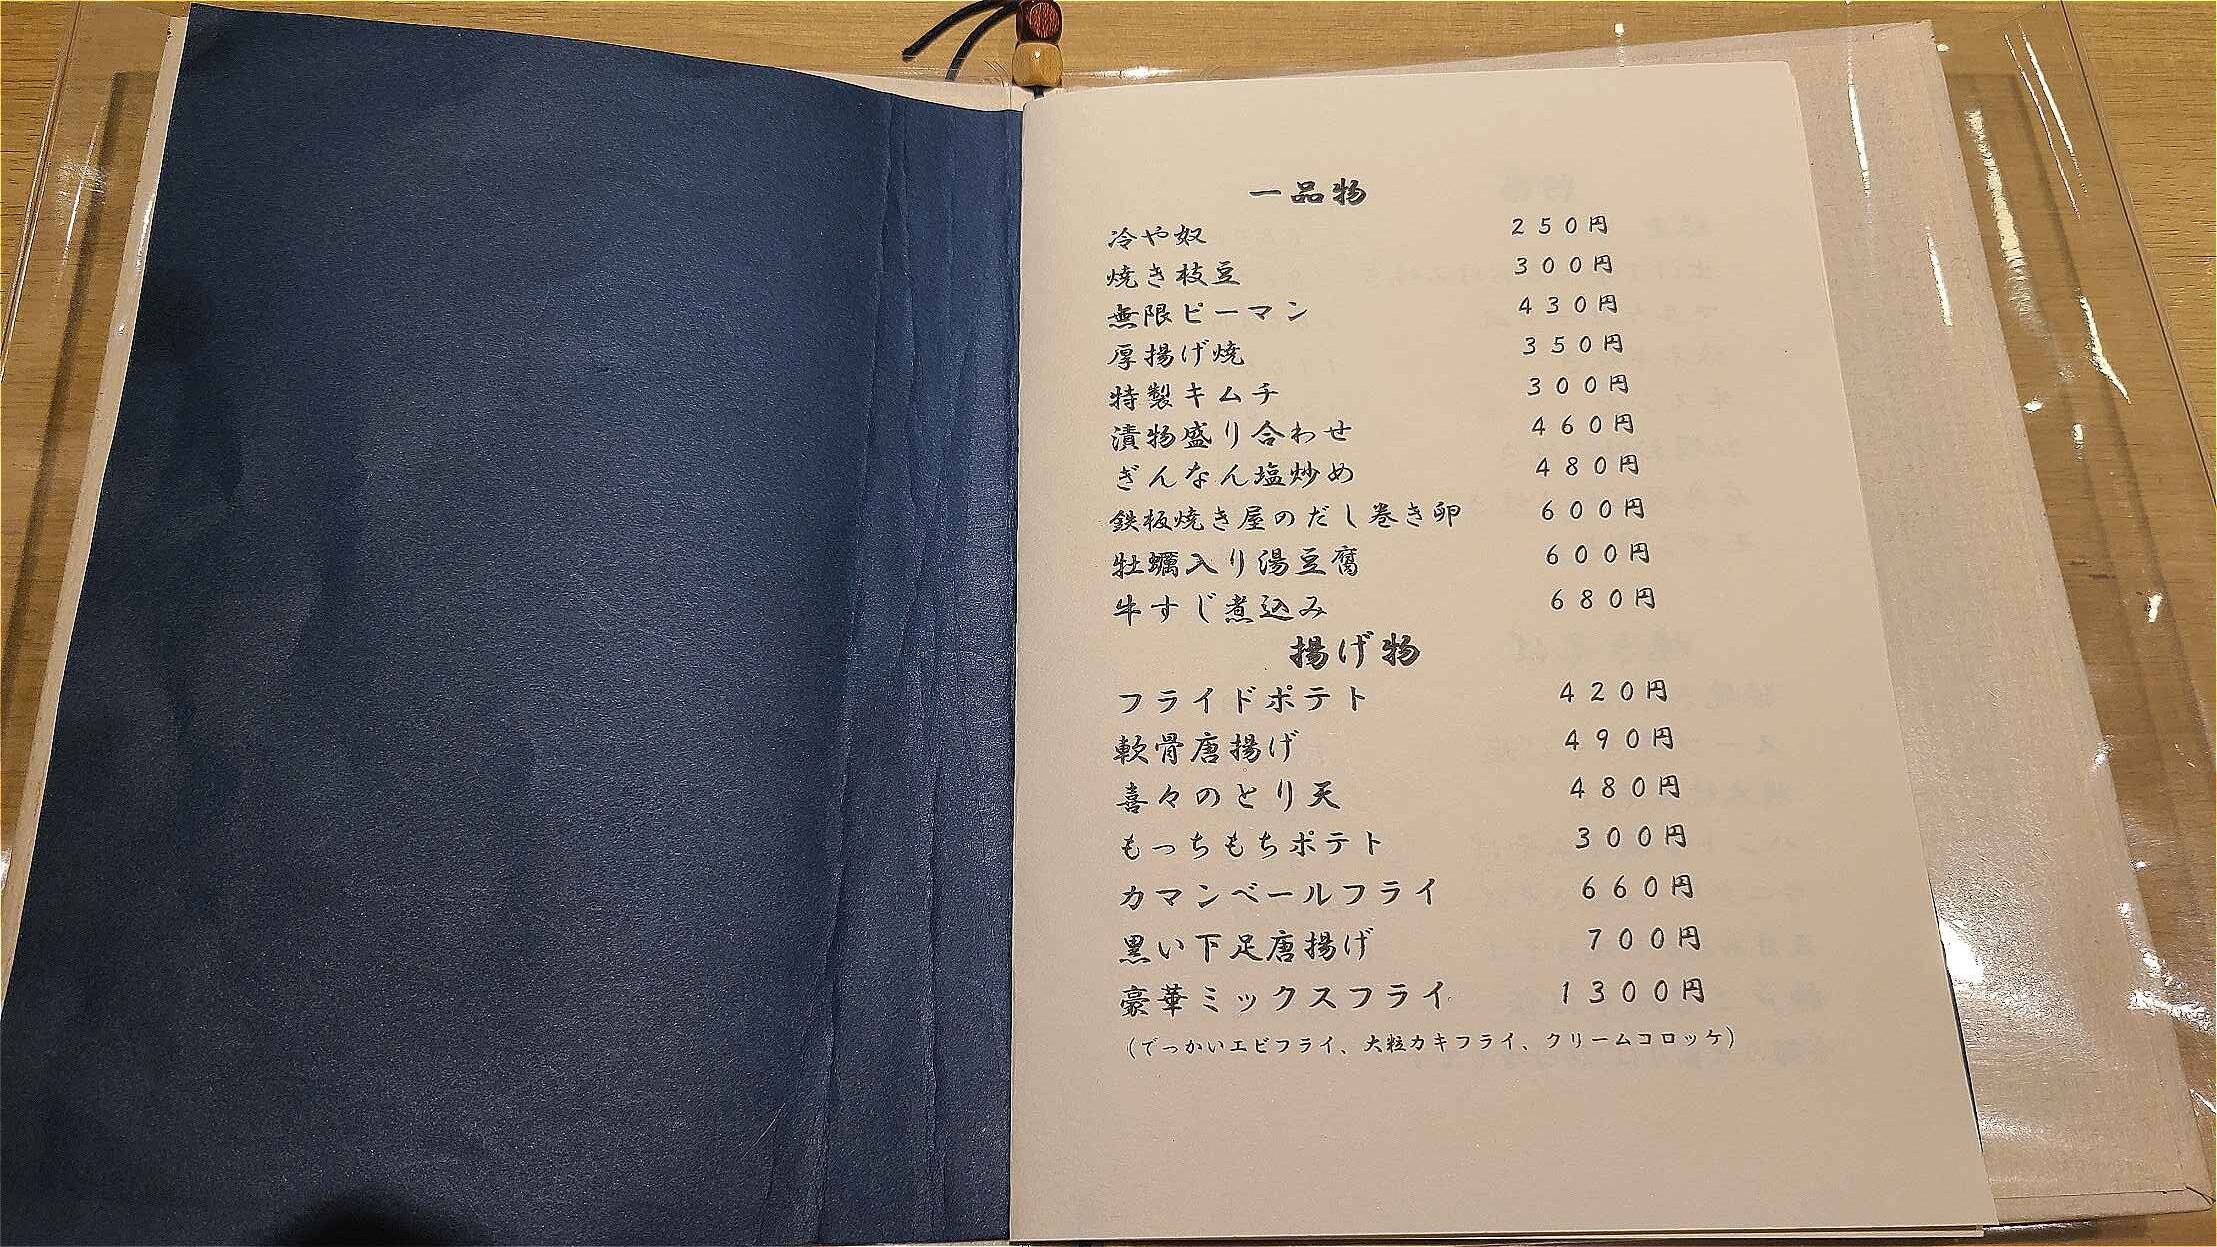 一品物
冷や奴 250円
焼き枝豆 300円
無限ピーマン 430円
厚揚げ焼 350円
特製キムチ 300円
漬物盛り合わせ 460円
ぎんなん塩炒め 480円
鉄板焼き屋のだし巻き卵 600円
牡蠣入り湯豆腐 600円
牛すじ煮込み 680円
揚げ物
フライドポテト 420円
軟骨唐揚げ 490円
喜々のとり天 480円
もっちもちポテト 300円
カマンベールフライ 660円
黒い下足唐揚げ 700円
豪華ミックスフライ 1300円
(でっかいエビフライ、大粒カキフライ、クリームコロッケ)